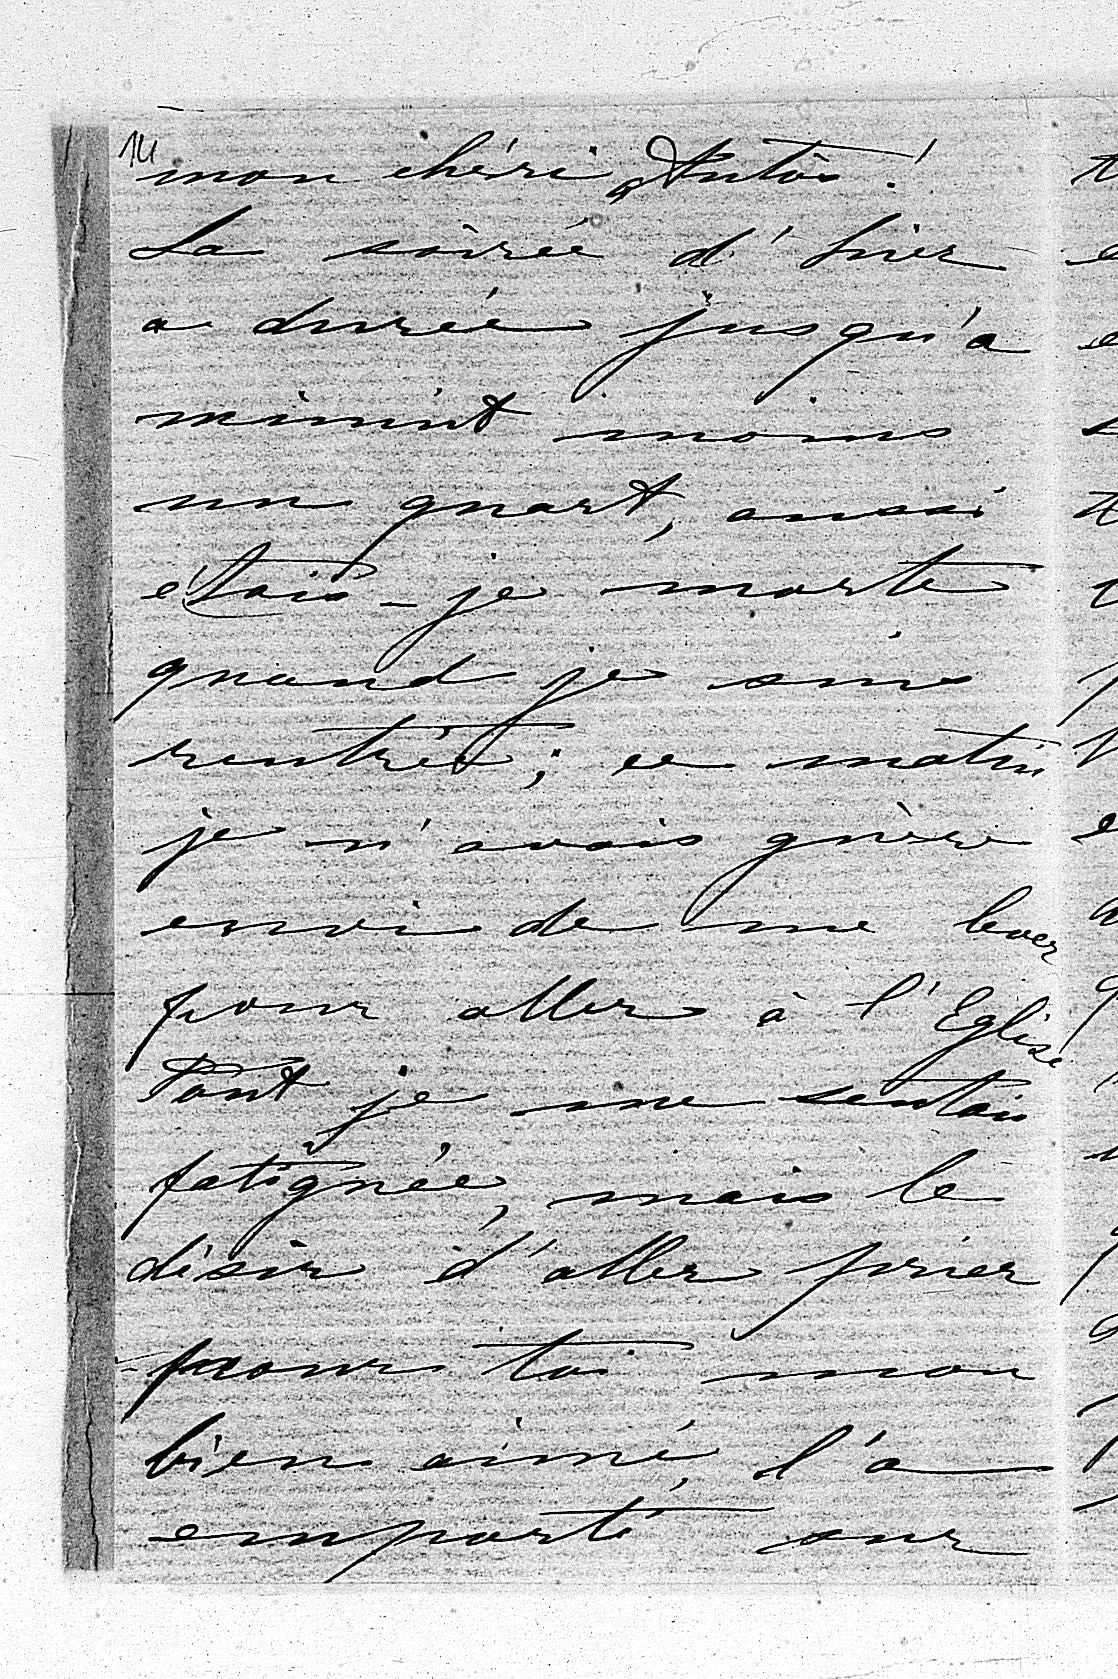 14
mon chéri Antôs!
La soirée d'hier
a durée jusqu'a
minuit moins
un quart, aussi
étais-je morte
quand je suis
rentrée; ce matin
je n'avais guère
envie de me lever
pour aller à l'Eglise
tant je me sentais
fatignée, mais le
désir d'aller prier
pour toi mon
bien aimé, l'a
emporté sur